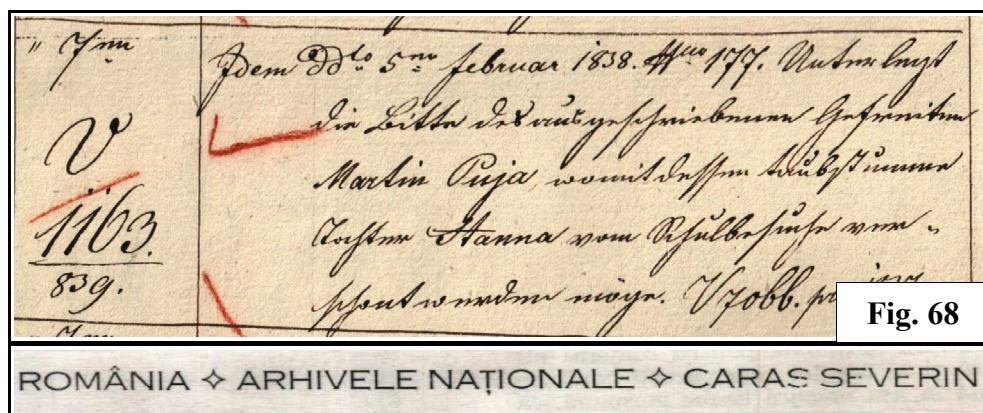 " 7ten
Idem ddto 5en Februar 1838. Nro 177. Unterlegt
V
die Bitte des ausgeschriebenen Gefreiten
1163.
Martin Puja, womit dessen taubstumme
839.
Tochter Stanna vom Schulbesuche ver„
schont werden möge.
Fig. 68
ROMÂNIA ✧ ARHIVELE NAȚIONALE ✧ CARAȘ SEVERIN